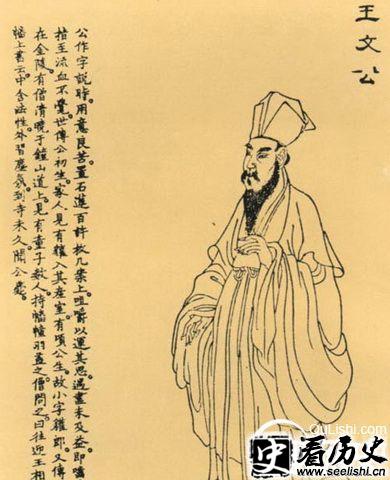 王文公
公作字說時。用意良苦。置石蓮百許枚几案上。咀嚼以運其思。遇盡未及益。即嚙
指至流血不覺。世傳公初生。家人見有獾入其產室。有頃公生。故小字獾郎。又傳
在金陵。有僧清曉。于鐘山道上。見有童子數人。持幡幢羽蓋之。僧問之。曰往迎王相
幡上書云。中含法性。外習塵氛。到寺未久。聞公薨。
QuLishi.com
史看历史
www.seelishi.com